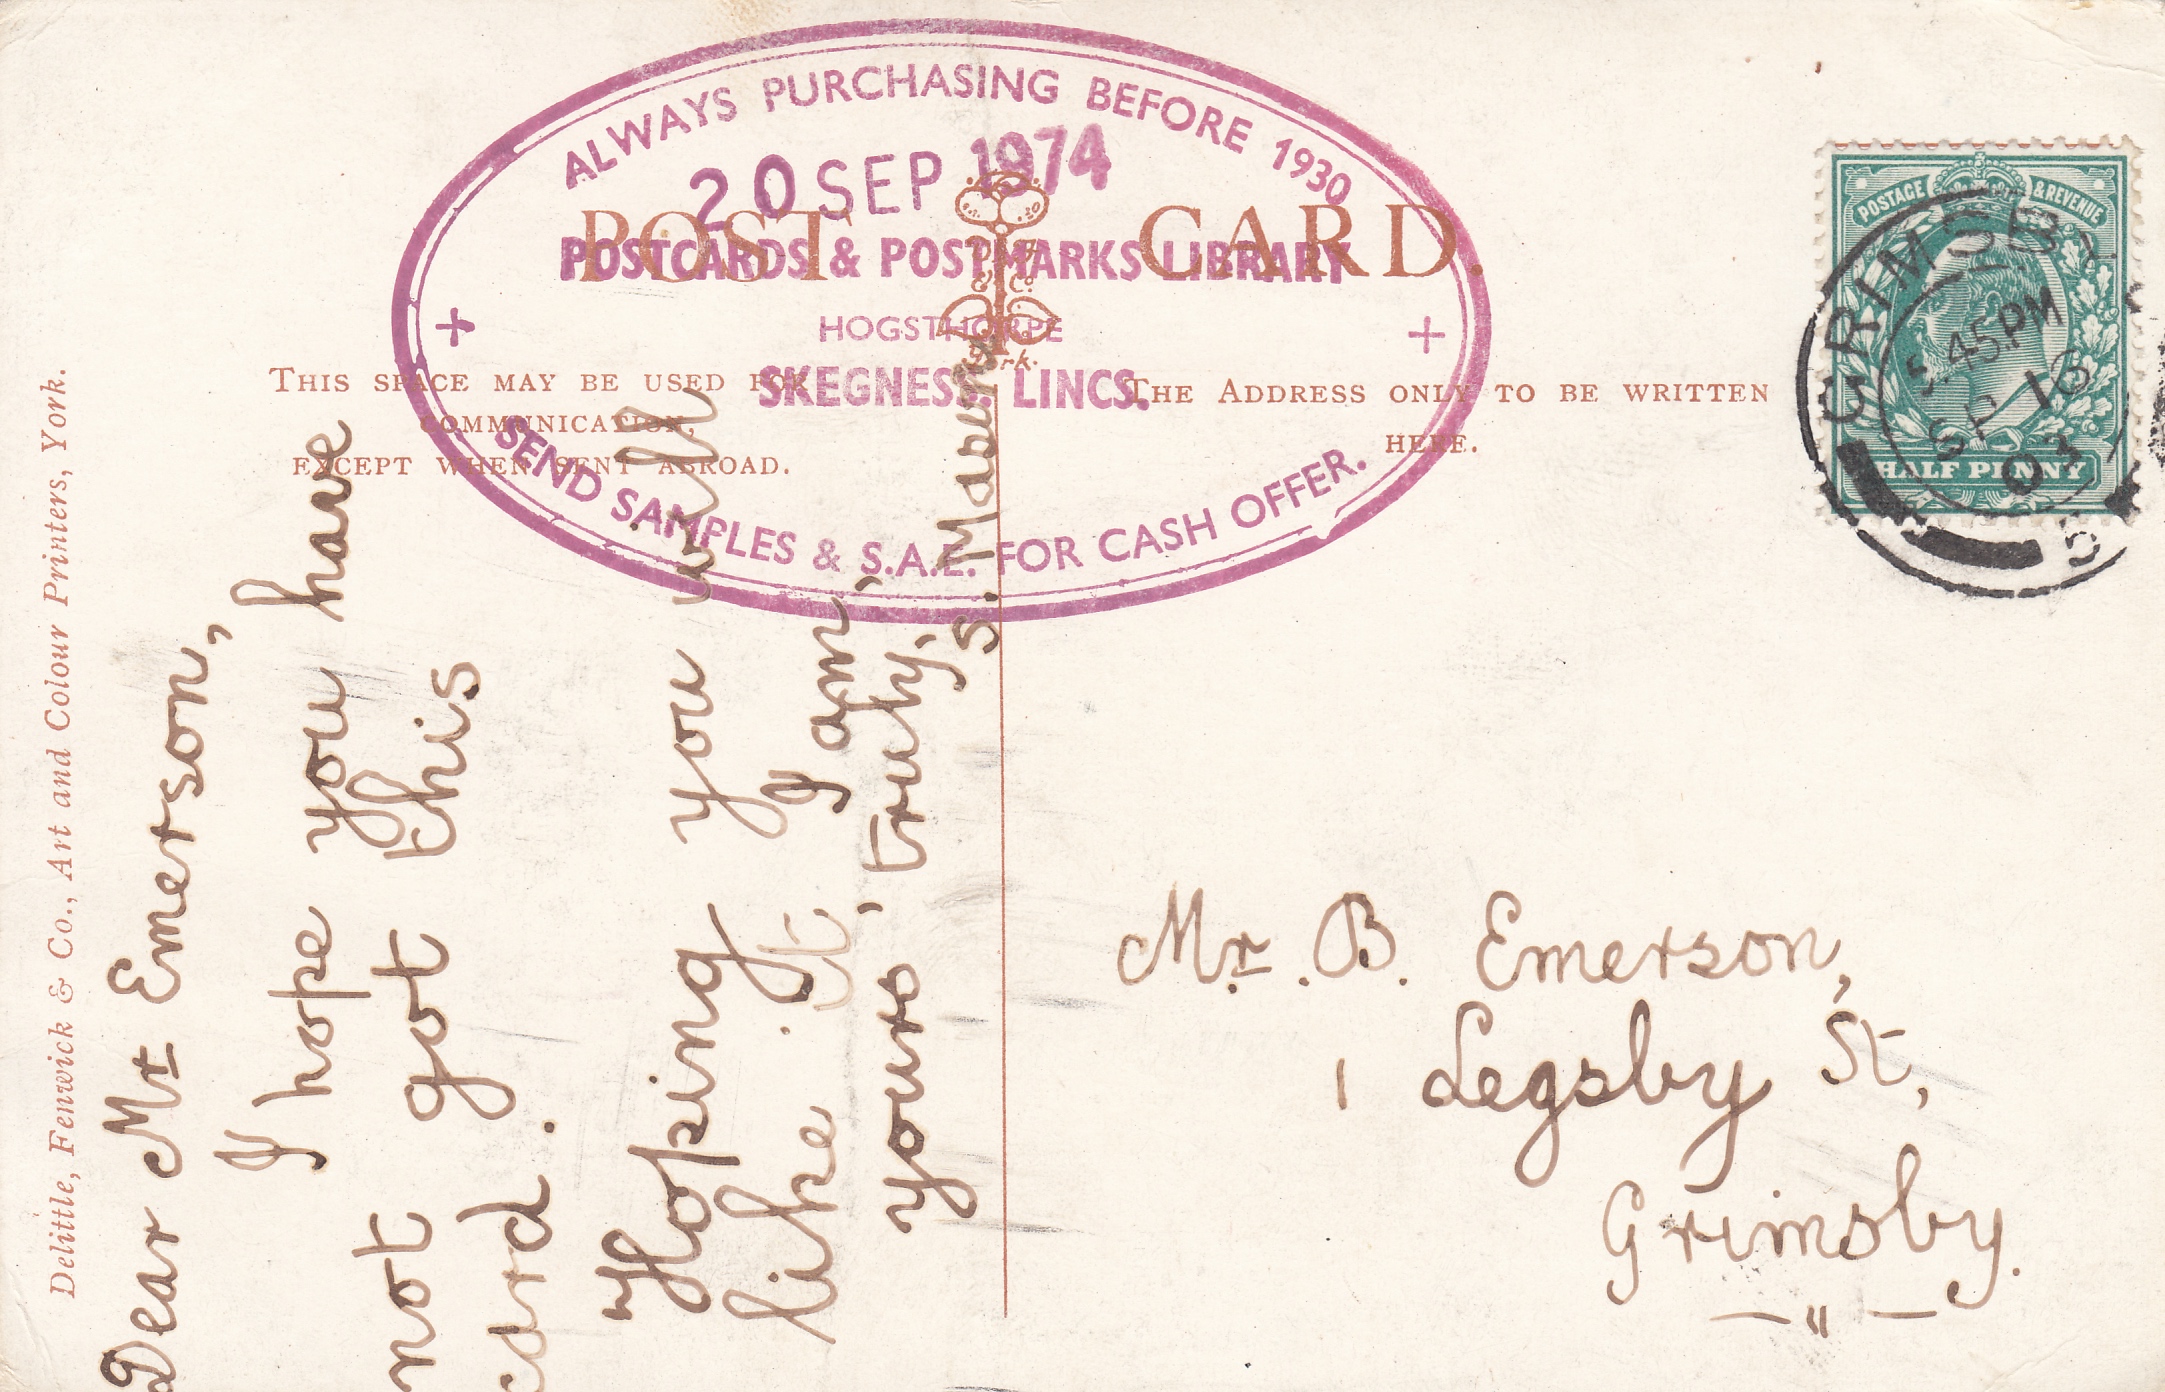 ALWAYS PURCHASING BEFORE 1930
20 SEP 1974
POST CARD.
POSTCARDS & POSTMARKS LIBRARY
HOGSTHORPE
SKEGNESS. LINCS.
SEND SAMPLES & S.A.E. FOR CASH OFFER.
THIS SPACE MAY BE USED FOR
COMMUNICATION,
EXCEPT WHEN SENT ABROAD.
THE ADDRESS ONLY TO BE WRITTEN
HERE.
POSTAGE & REVENUE
HALF PENNY
GRIMSBY
5.45PM
SP 16
03
Delittle, Fenwick & Co., Art and Colour Printers, York.
Dear Mr Emerson,
I hope you have
not got this
card.
Hoping you will
like it. I am,
yours, truly,
S.
Mr. B. Emerson,
1 Legsby St,
Grimsby.